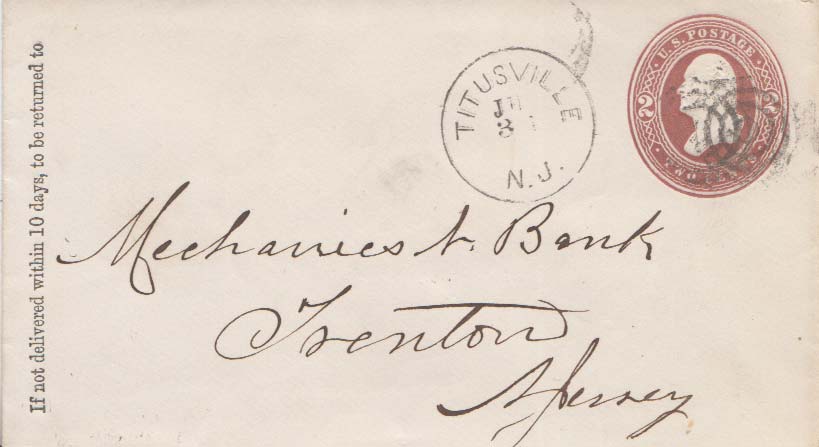 If not delivered within 10 days, to be returned to
TITUSVILLE
N. J.
U.S. POSTAGE
2 2
TWO
Mechanics N. Bank
Trenton
N Jersey